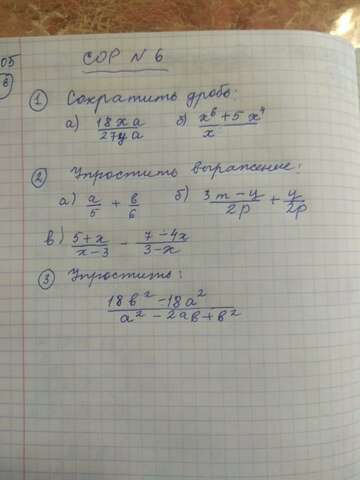 05
в)
СОР N 6
① Сократить дробь:
а) 18xa/27ya б) x⁶+5x⁴/x
② Упростить выражение:
а) a/5 + в/6 б) 3m-y/2p + y/2p
в) 5+x/x-3 - 7-4x/3-x
③ Упростить:
18в²-18a²/a²-2aв+в²